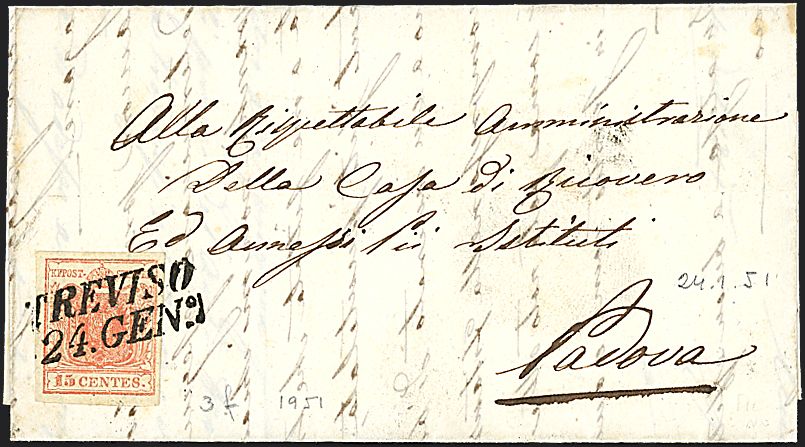 Alla Rispettabile Amministrazione
Della Casa di Ricovero
Ed Annessi Pii Istituti
24.1.51
Padova
KPPOST-
TREVISO
24.GEN.º
15 CENTES.
3 f 1951